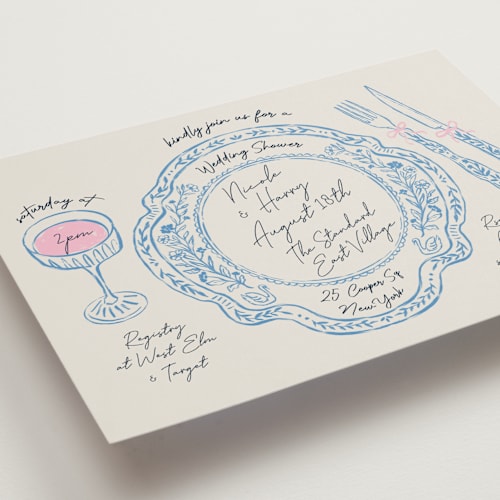 kindly join us for a
Wedding Shower
Nicole
& Harry
August 18th
The Standard
East Village
25 Cooper Sq
New York
Saturday at
2pm
Registry
at West Elm
& Target